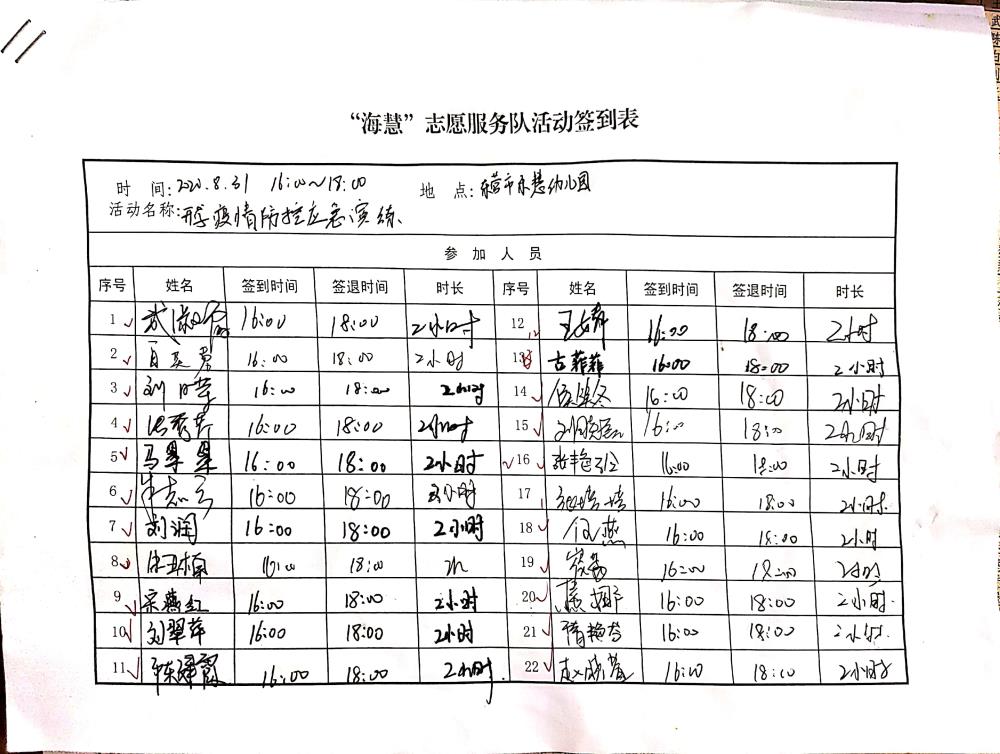 “海慧”志愿服务队活动签到表
时 间: 2020.8.31 16:00~18:00 地 点: 东营市 慧幼儿园
活动名称: 疫情防控应急演练
参 加 人 员
序号 姓名 签到时间 签退时间 时长 序号 姓名 签到时间 签退时间 时长
1 16:00 18:00 2小时 12 16:00 18:00 2小时
2 16:00 18:00 2小时 13 古菲菲 16:00 18:00 2小时
3 16:00 18:00 2小时 14 16:00 18:00 2小时
4 16:00 18:00 2小时 15 16:00 18:00 2小时
5 马翠翠 16:00 18:00 2小时 16 16:00 18:00 2小时
6 16:00 18:00 2小时 17 16:00 18:00 2小时
7 刘润 16:00 18:00 2小时 18 16:00 18:00 2小时
8 16:00 18:00 2h 19 16:00 18:00 2小时
9 宗燕红 16:00 18:00 2小时 20 16:00 18:00 2小时
10 刘翠萍 16:00 18:00 2小时 21 隋艳芳 16:00 18:00 2小时
11 16:00 18:00 2小时 22 16:00 18:00 2小时